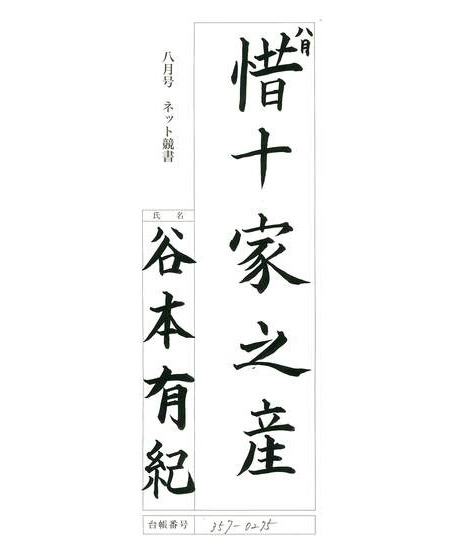 八月
惜十家之産
八月号 ネット競書
氏名
谷本有紀
台帳番号 357-0275